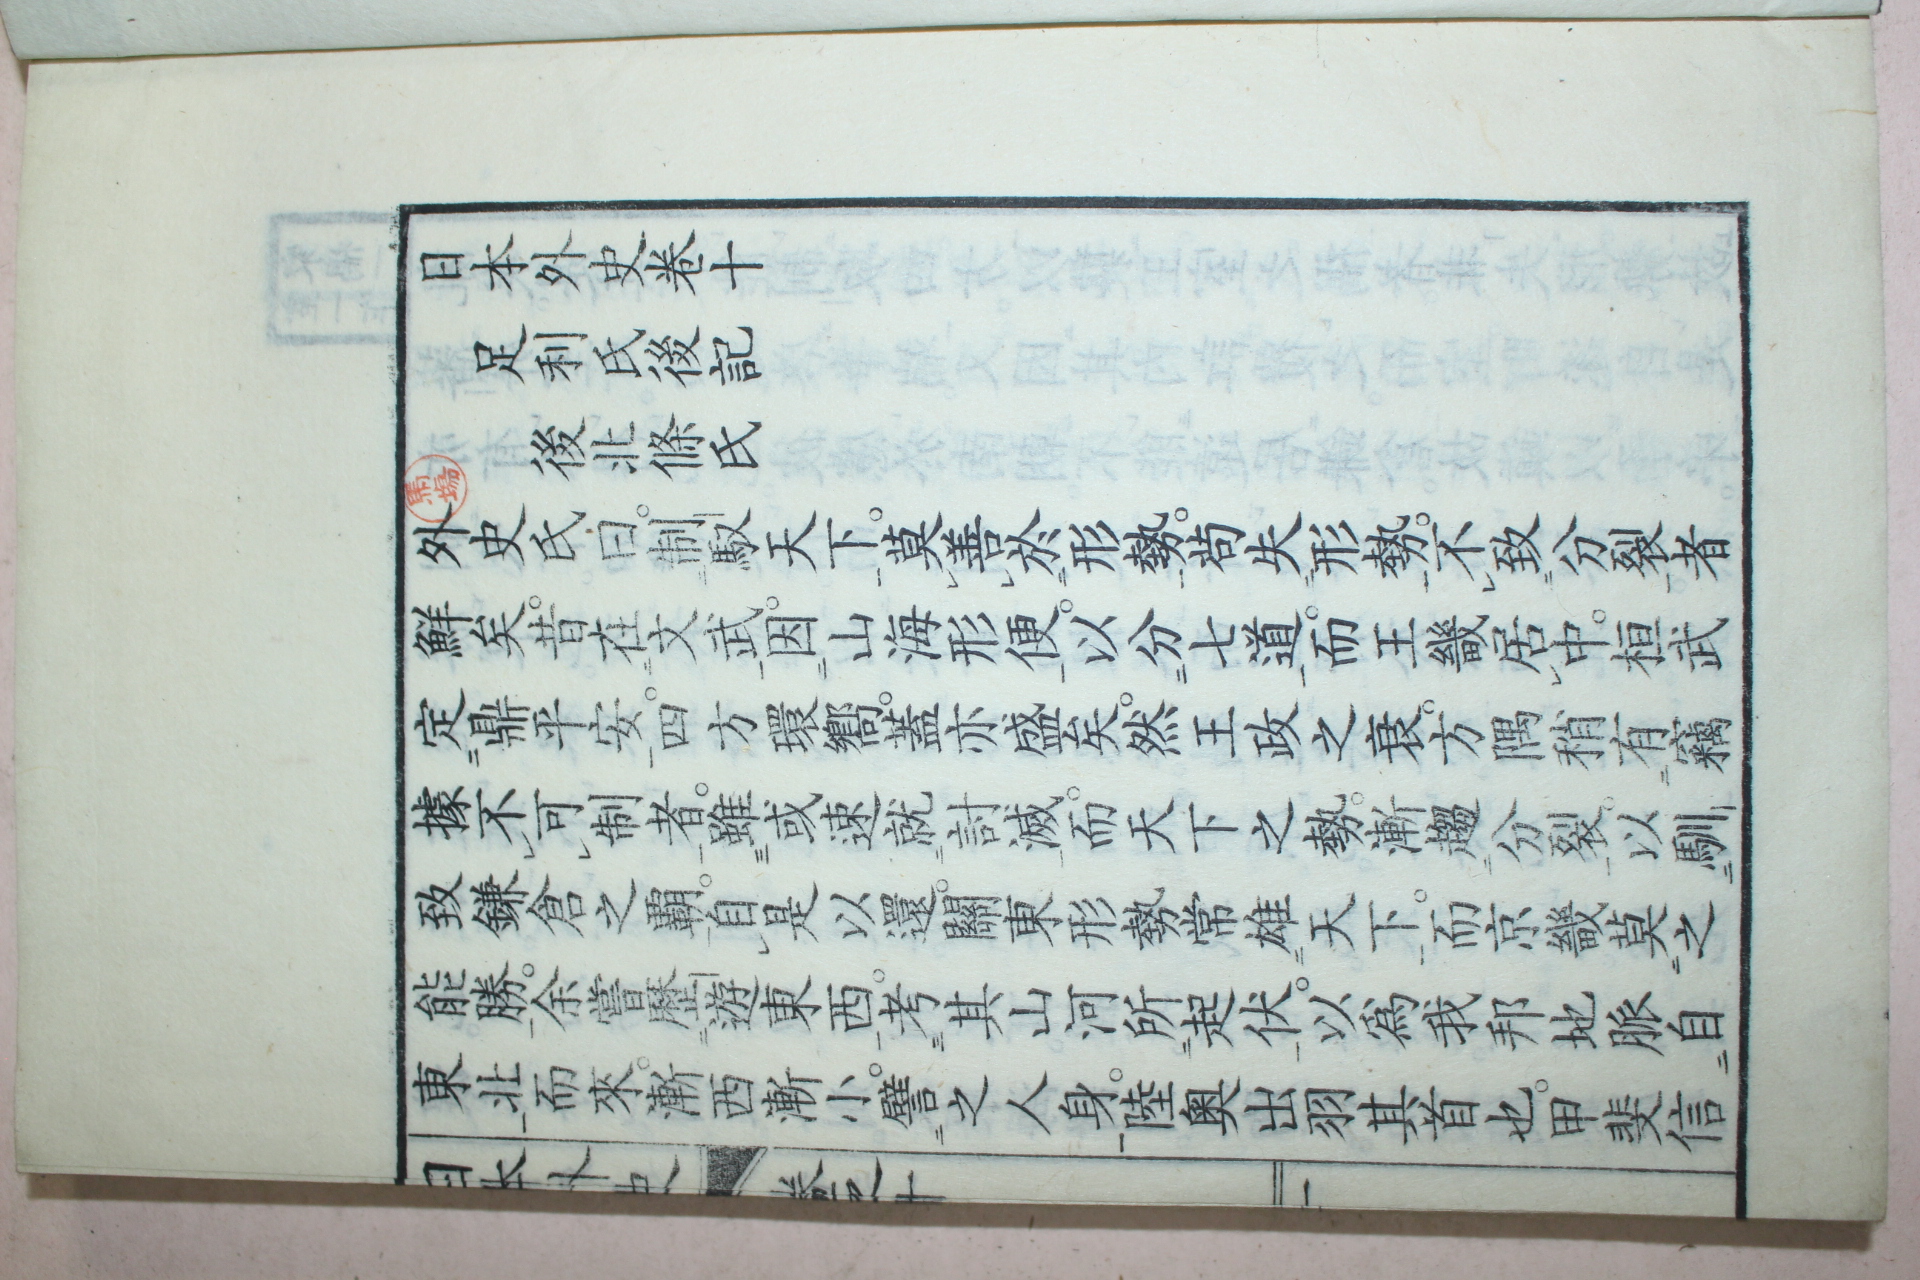 日本外史卷十
足利氏後記
後北條氏
馬場
外史氏曰。制馭天下。莫善於形勢。苟失形勢。不致分裂者
鮮矣。昔在文武。因山海形便。以分七道。而王畿居中。桓武
定鼎平安。四方環嚮。蓋亦盛矣。然王政之衰。方隅稍有竊
據不可制者。雖或速就討滅。而天下之勢。漸趨分裂。以馴
致鎌倉之霸。自是以還。關東形勢常雄天下。而京畿莫之
能勝。余嘗歷遊東西。考其山河所起伏。以爲我邦地脈自
東北而來。漸西漸小。譬之人身。陸奧出羽其首也。甲斐信
日本外史 卷之十 一